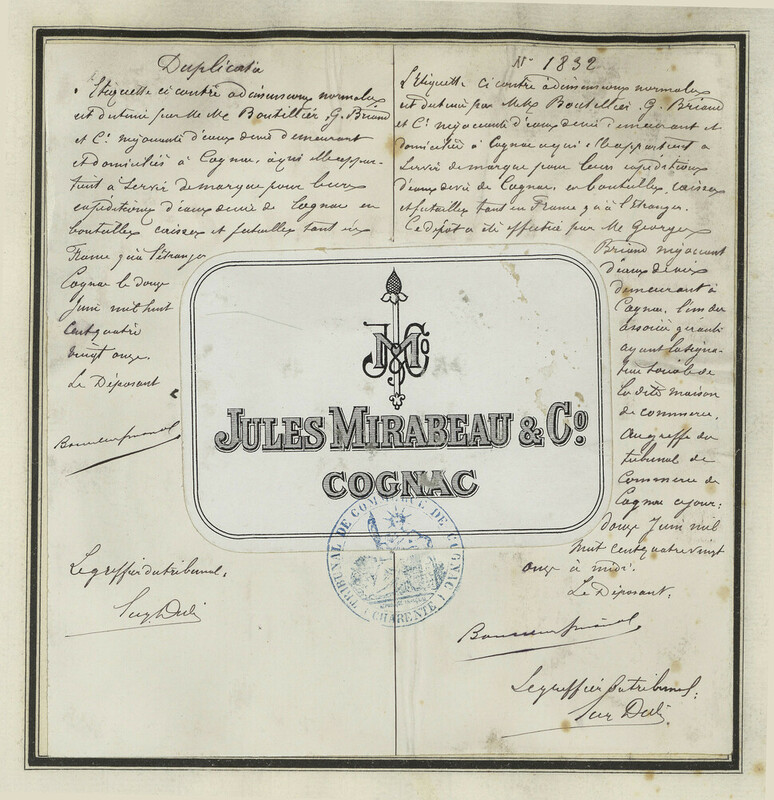 Duplicata
L'Etiquette ci contre a dimensions normales
est destinée par MM Boutillier G. Briand
et Cie négociants d'eaux de vie demeurant
et domiciliés à Cognac, à qui elle appar-
tient à servir de marque pour leurs
expéditions d'eaux de vie de Cognac en
bouteilles caisses et futailles tant en
France qu'à l'étranger
Cognac le douze
Juin mil huit
cent quatre
vingt onze.
Le Déposant
Le greffier du tribunal,
No 1832
L'Etiquette ci contre a dimensions normales
est destinée par MM Boutillier G. Briand
et Cie négociants d'eaux de vie demeurant et
domiciliés à Cognac a qui elle appartient a
servir de marque pour leurs expéditions
d'eaux de vie de Cognac, en bouteilles, caisses
et futailles tant en France qu'à l'Etranger.
Ce dépôt a été effectué par Mr Georges
Briand négociant
d'eaux de vie
demeurant à
Cognac, l'un des
associés gérants
ayant la signa-
ture sociale de
la dite maison
de commerce,
au greffe du
tribunal de
Commerce de
Cognac ce jour:
douze Juin mil
huit cent quatre vingt
onze à midi.
Le Déposant.
Le greffier du tribunal:
JMCo
JULES MIRABEAU & Co.
COGNAC
TRIBUNAL DE COMMERCE DE COGNAC
(CHARENTE)